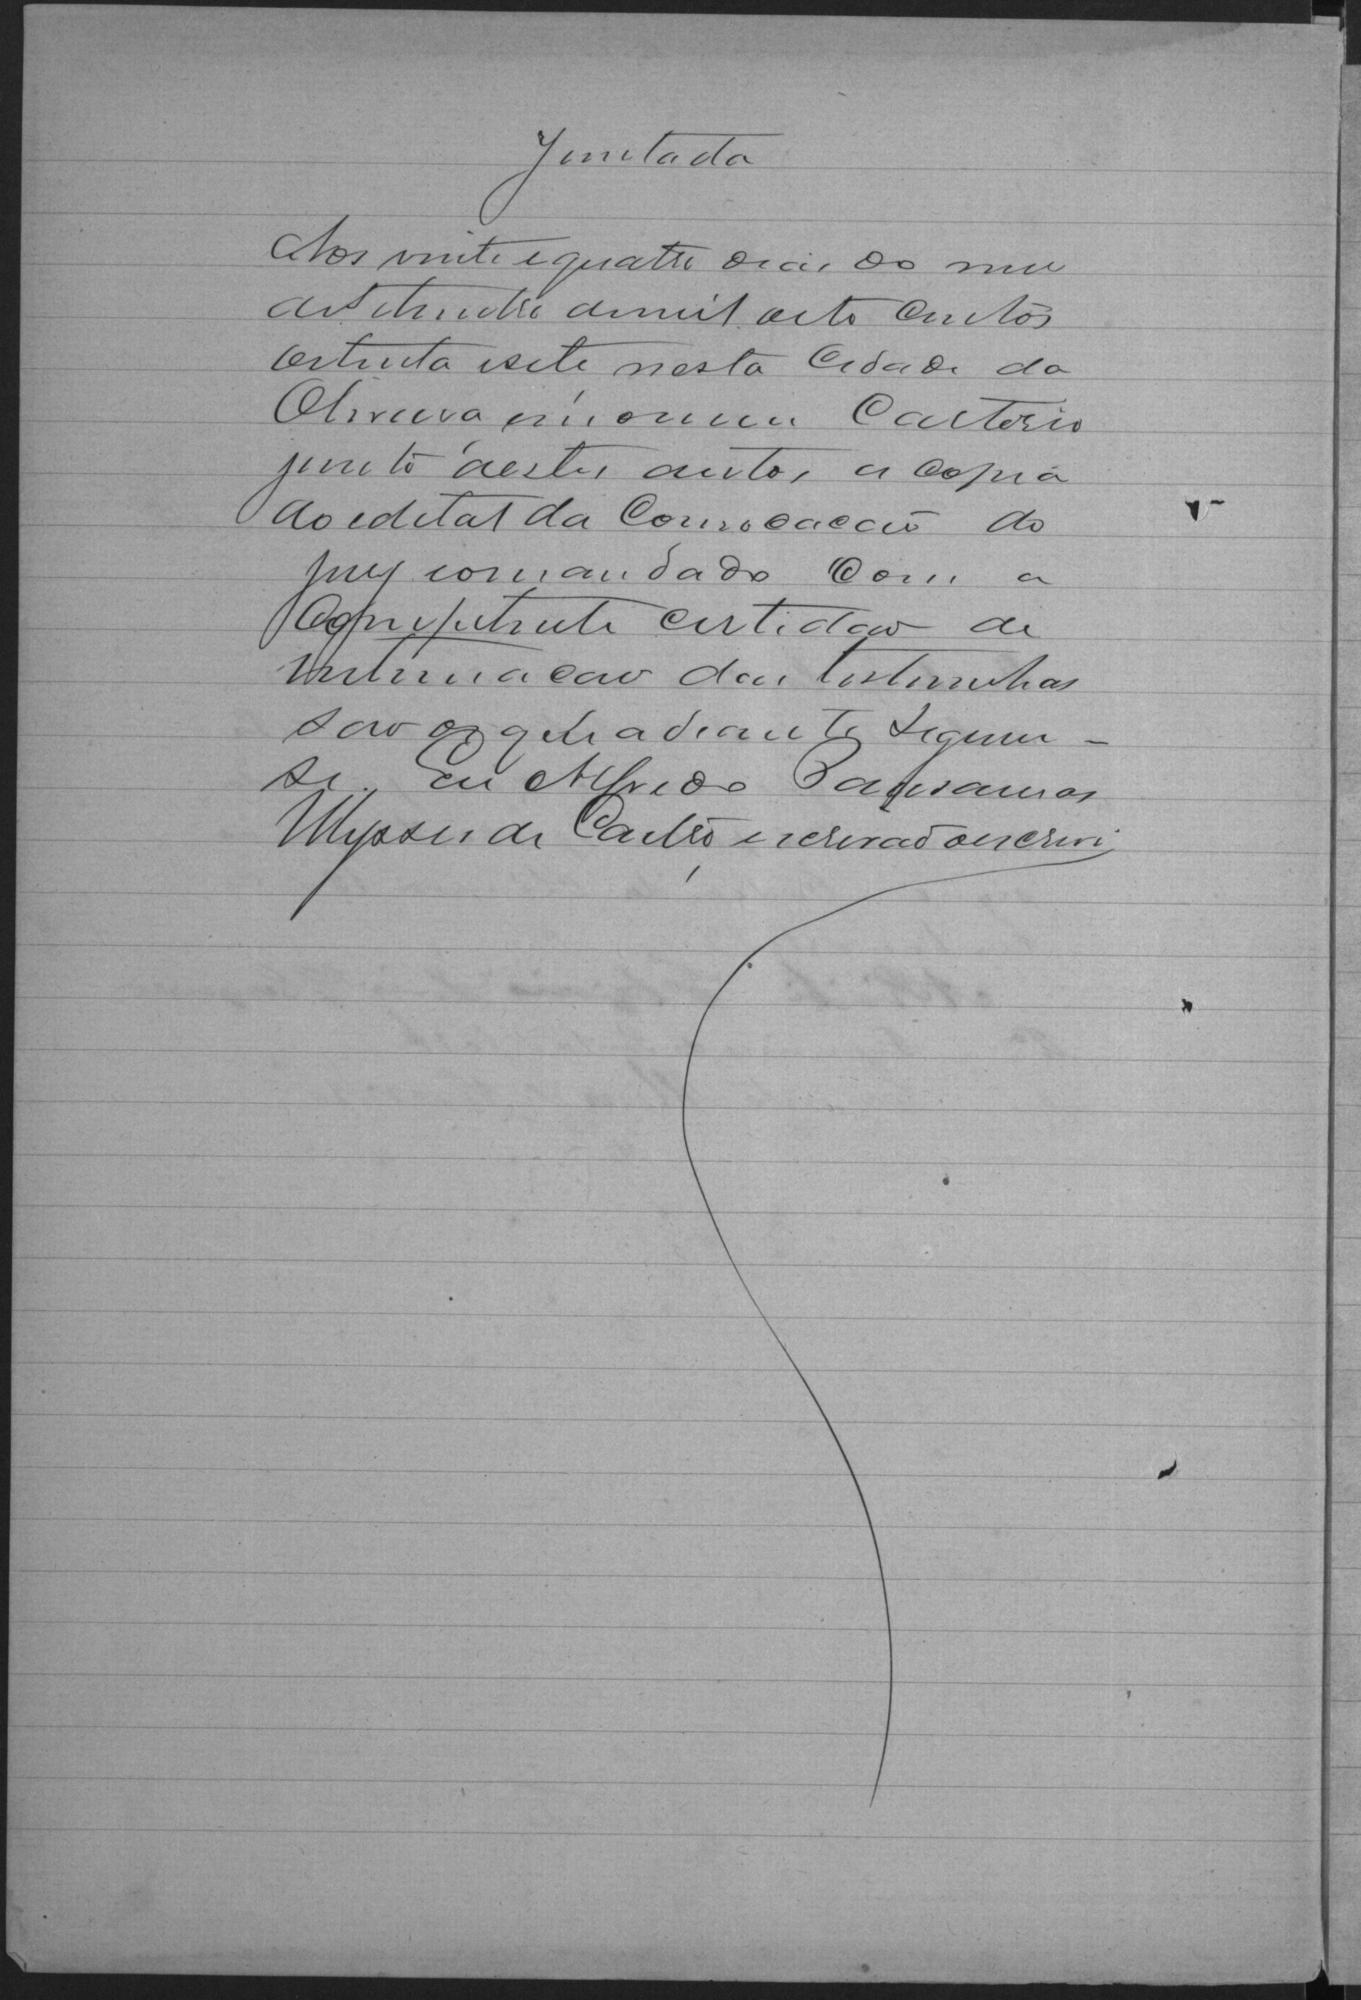 Juntada
Aos vinte e quatro dias do mez
de Setembro de mil oito centos
oitenta e sete nesta Cidade da
Oliveira em o meu Cartorio
junto a estes autos a copia
do edital da Convocacão do
jury e o mandado Com a
Competente certidão de
intimacão das testemunhas
são os que adiante seguem-
se. Eu Alfredo
Ulysses de Castro escrivão o escrevi